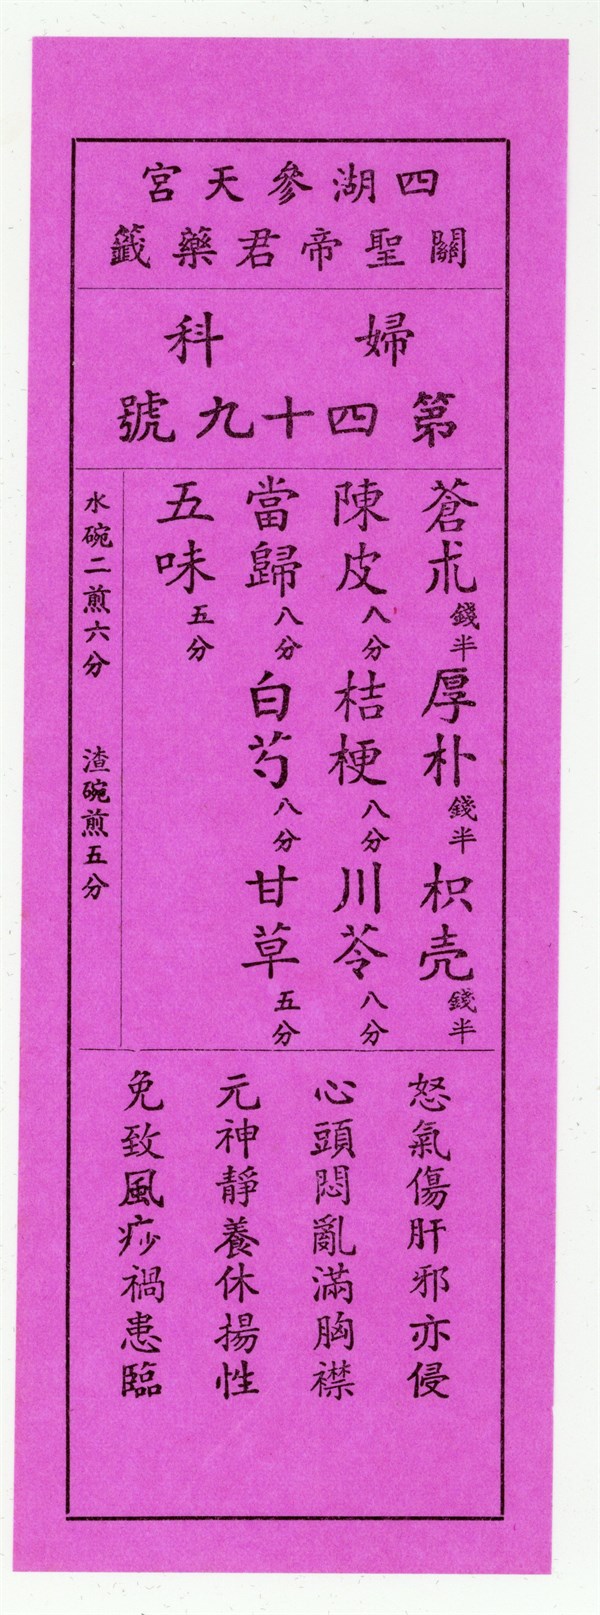 四湖參天宮
關聖帝君藥籤
婦科
第四十九號
蒼朮錢半厚朴錢半枳壳錢半
陳皮八分桔梗八分川芩八分
當歸八分白芍八分甘草五分
五味五分
水碗二煎六分 渣碗煎五分
怒氣傷肝邪亦侵
心頭悶亂滿胸襟
元神靜養休揚性
免致風痧禍患臨